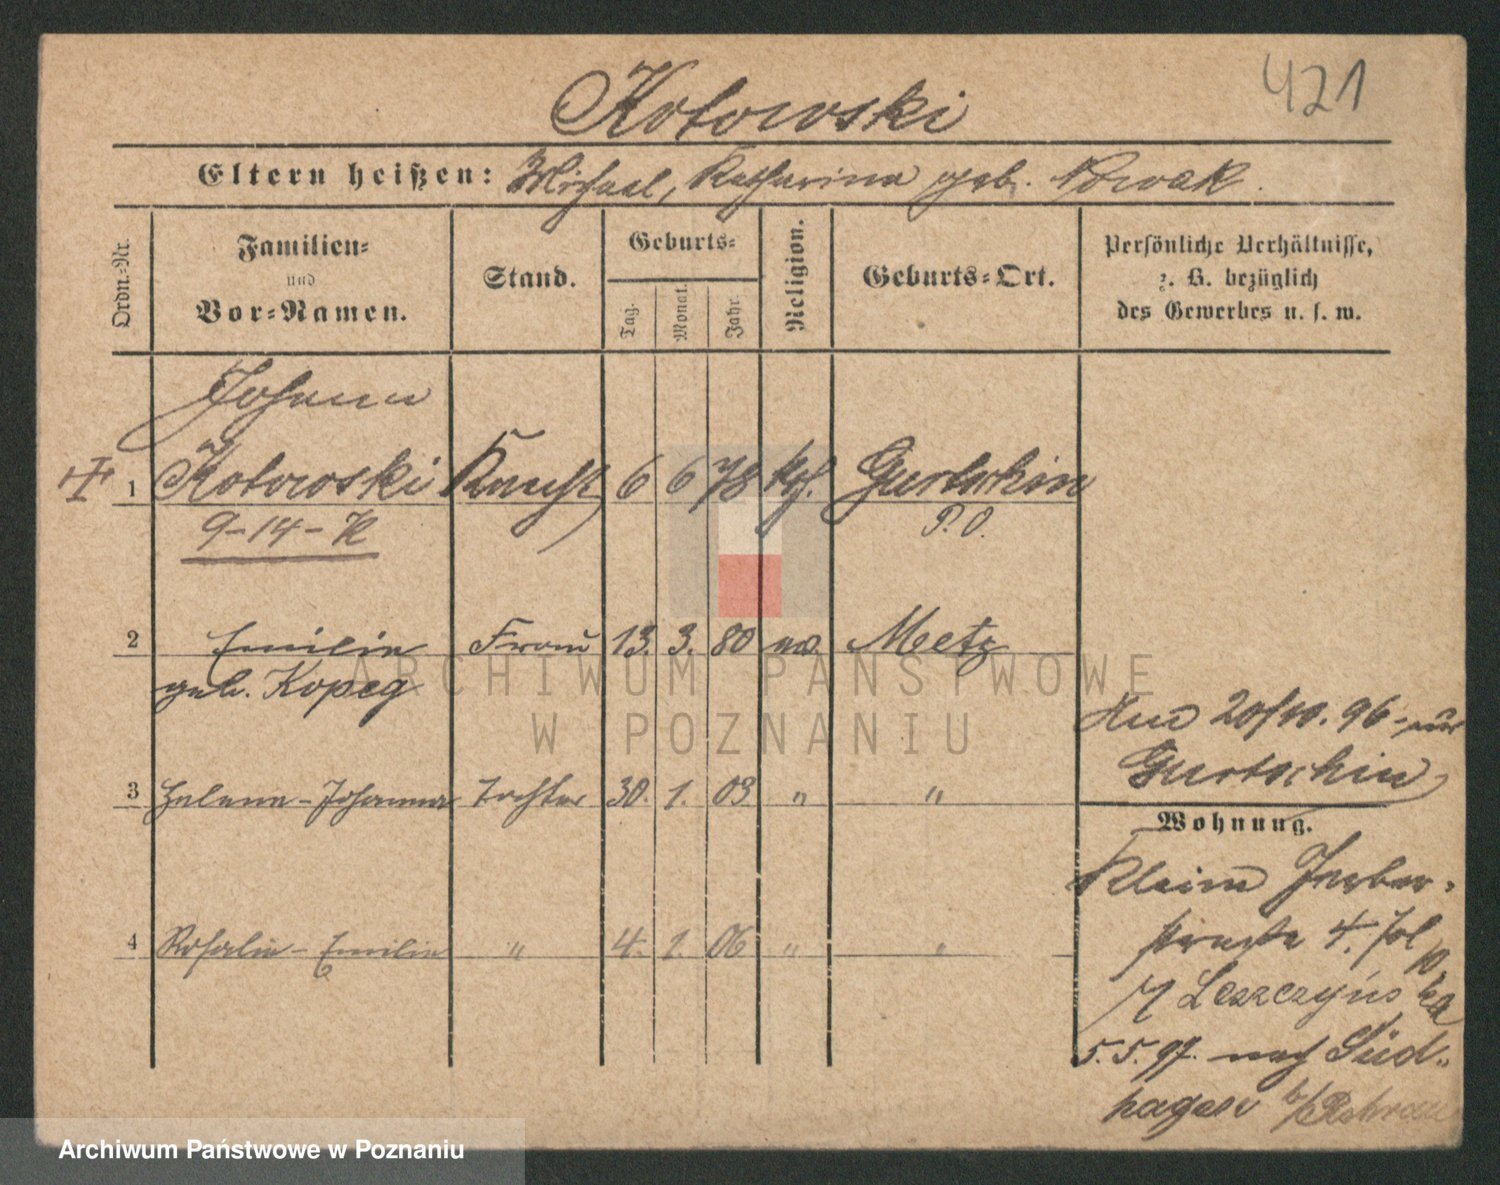 421
Kotowski
Eltern heißen: Michael, Katharina geb. Nowak.
Ordn.-Nr.
Familien-
und
Vor-Namen.
Stand.
Geburts-
Tag.
Monat.
Jahr.
Religion.
Geburts-Ort.
Persönliche Verhältnisse,
z. B. bezüglich
des Gewerbes u. s. w.
Johann
1 Kotowski Knecht 6 6 78 kth. Gurtschin
9-14-K P. O.
2 Emilie Frau 13. 3. 80 Metz
geb. Kopeg
ARCHIWUM PAŃSTWOWE
W POZNANIU
20/10. 96
Gurtschin
3 Helena-Johanna Tochter 30. 1. 03 " "
Wohnung.
Klein Gerber-
strasse 4.
4 Rosalie-Emilie " 4. 1. 06 " "
Leszczyńska
5.5.97. nach Süd-
hagen b/
Archiwum Państwowe w Poznaniu